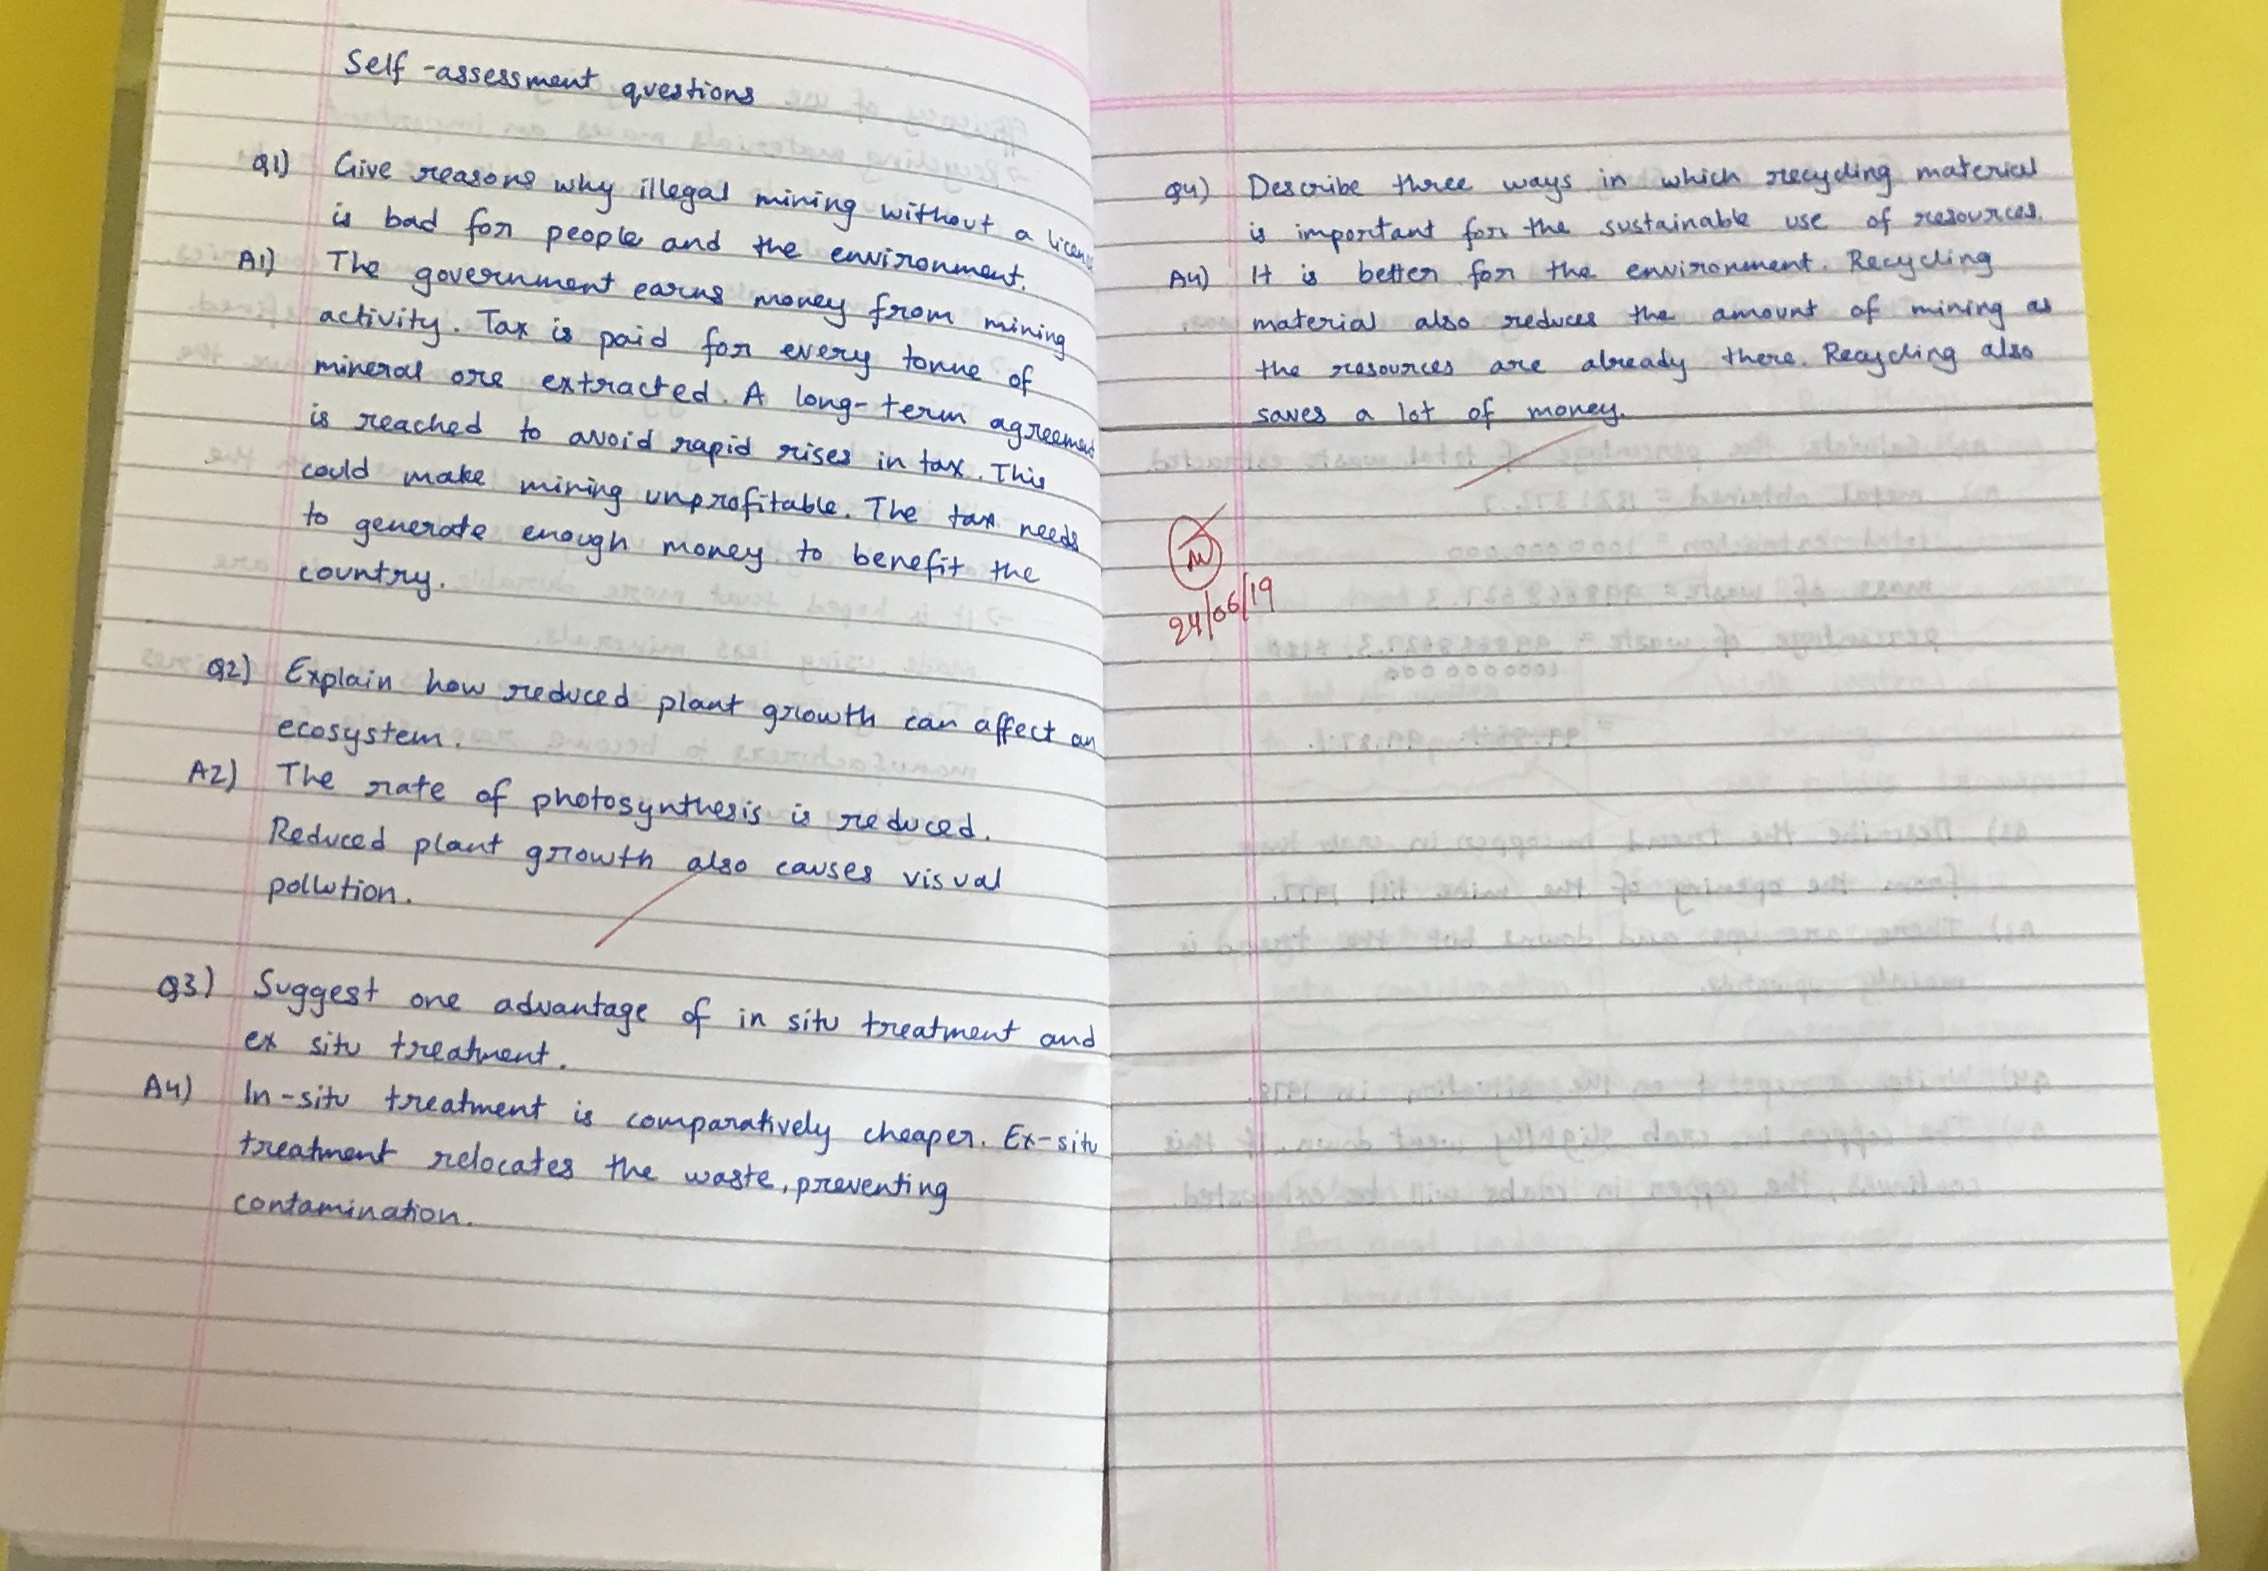 Self-assessment questions
Q1) Give reasons why illegal mining without a
is bad for people and the environment.
A1) The government earns money from mining
activity. Tax is paid for every tonne of
mineral ore extracted. A long-term agreement
is reached to avoid rapid rises in tax. This
could make mining unprofitable. The tax needs
to generate enough money to benefit the
country.
Q2) Explain how reduced plant growth can affect an
ecosystem.
A2) The rate of photosynthesis is reduced.
Reduced plant growth also causes visual
pollution.
Q3) Suggest one advantage of in situ treatment and
ex situ treatment.
A4) In-situ treatment is comparatively cheaper. Ex-situ
treatment relocates the waste, preventing
contamination.
Q4) Describe three ways in which recycling material
is important for the sustainable use of resources.
A4) It is better for the environment. Recycling
material also reduces the amount of mining as
the resources are already there. Recycling also
saves a lot of money.
24/06/19